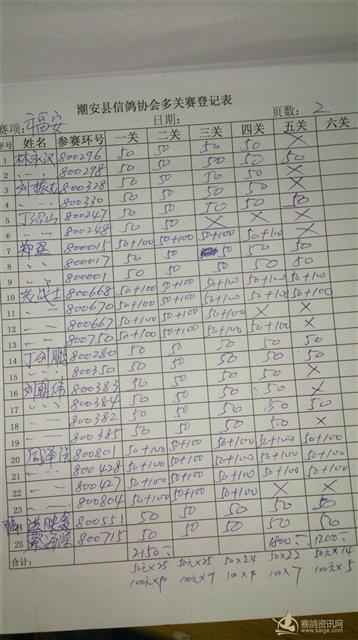 潮安县信鸽协会多关赛登记表
赛项: 福安 日期: 页数: 2
序号 姓名 参赛环号 一关 二关 三关 四关 五关 六关
1 林 800296 50 50 50 50 ×
2 〃 800298 50 50 50 50 50
3 刘 800328 50 50 50 50 ×
4 800330 50 50 50 50 50
5 800247 50 50 50 × ×
6 800248 50 50 × × ×
7 郑 800015 50+100 50+100 50+100 50+100 ×
8 800017 50 50 50 50
9 800001 50 50 50 50 50
10 800668 50+100 50+100 50+100 50+100 50+100
11 800670 50+100 50+100 50+100 50+100 50+100
12 800667 50+100 50+100 50+100 × ×
13 800750 50+100 50+100 50+100 50+100 ×
14 丁剑鹏 800280 50 50 50 50 50
15 800350 50 50 50 50 50
16 刘朝伟 800383 50 50 50 50 ×
17 800384 50 50 50 50 50
18 800382 50 50 50 50 ×
19 800385 50 50 50 50 50
20 周泽强 800801 50+100 50+100 50+100 50+100 50+100
21 800428 50+100 50+100 50+100 50+100 50+100
22 800427 50+100 50+100 50+100 × ×
23 800804 50+100 50+100 50+100 50+100 ×
24 800551 50 50 50 50 50
25 800715 50 50 50 50 50
合计: 2150 1800 1200
50元×25 50元×25 50×24 50×22 50元×14
100元×9 100元×9 100×9 100×7 100元×5
赛鸽资讯网
www.saige.com